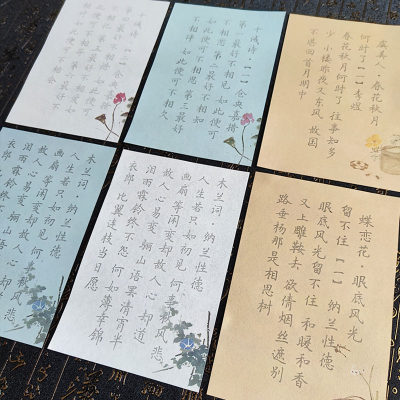 十诫诗·【一】仓央嘉措
第一最好不相见 如此便可
不相恋 第二最好不相知
如此便可不相思 第三最好
不相伴 如此便可不相欠
虞美人·春花秋月
何时了【一】李煜
春花秋月何时了 往事知多
少 小楼昨夜又东风 故国
不堪回首月明中
木兰词·纳兰性德
人生若只如初见 何事秋风悲
画扇 等闲变却故人心 却道
故人心易变 骊山语
泪雨霖铃终不怨 何如
衣郎
木兰词·纳兰性德
人生若只如初见 何事秋风悲
画扇 等闲变却故人心 却道
故人心易变 骊山语罢清宵半
泪雨霖铃终不怨 何如薄幸锦
衣郎 比翼连枝当日愿
蝶恋花·眼底风光
留不住【一】纳兰性德
眼底风光留不住 和暖和香
又上雕鞍去 欲倩烟丝遮别
路 垂杨那是相思树